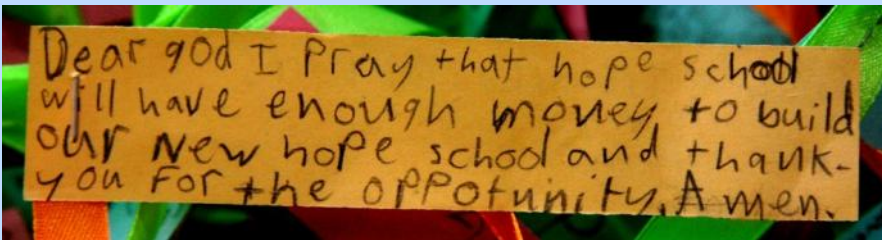 Dear god I Pray that hope school
will have enough money to build
our New hope school and thank-
you For the oppotunity. Amen.